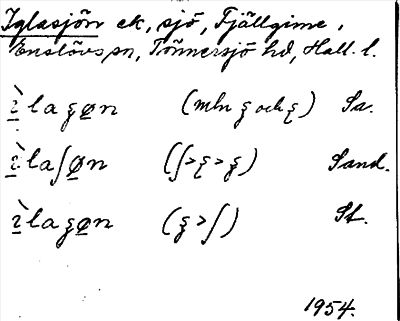 Iglasjön ek, sjö, Fjällgime,
Enslövs sn, Tönnersjö hd, Hall. l.
ìlaʒøn (mln ʒ och ȿ) Sa.
ìlaʃøn (ʃ > ȿ > ʒ) Sand.
ìlaʒøn (ʒ > ʃ) St.
1954.